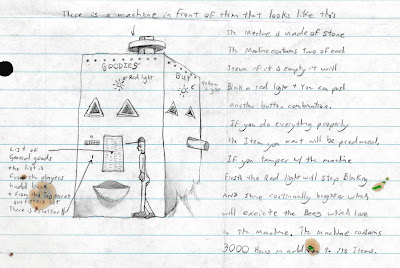 There is a machine in front of them that looks like this
GOODIES
Red light
BUY
Yellow
light
LIST of
General goods
the list is
From the players
hand book
+ From the
There is
The Machine is made of Stone
The Machine contains two of each
Item if it is empty it will
Blink a red light + You can push
another button combination.
If you do everything properly
the Item you want will be produced,
If you tamper w/ the machine
First the Red light will stop Blinking
And shine continually brighter which
will execute the Bees which live
in the Machine. The Machine contains
3000 in addition to its Items.